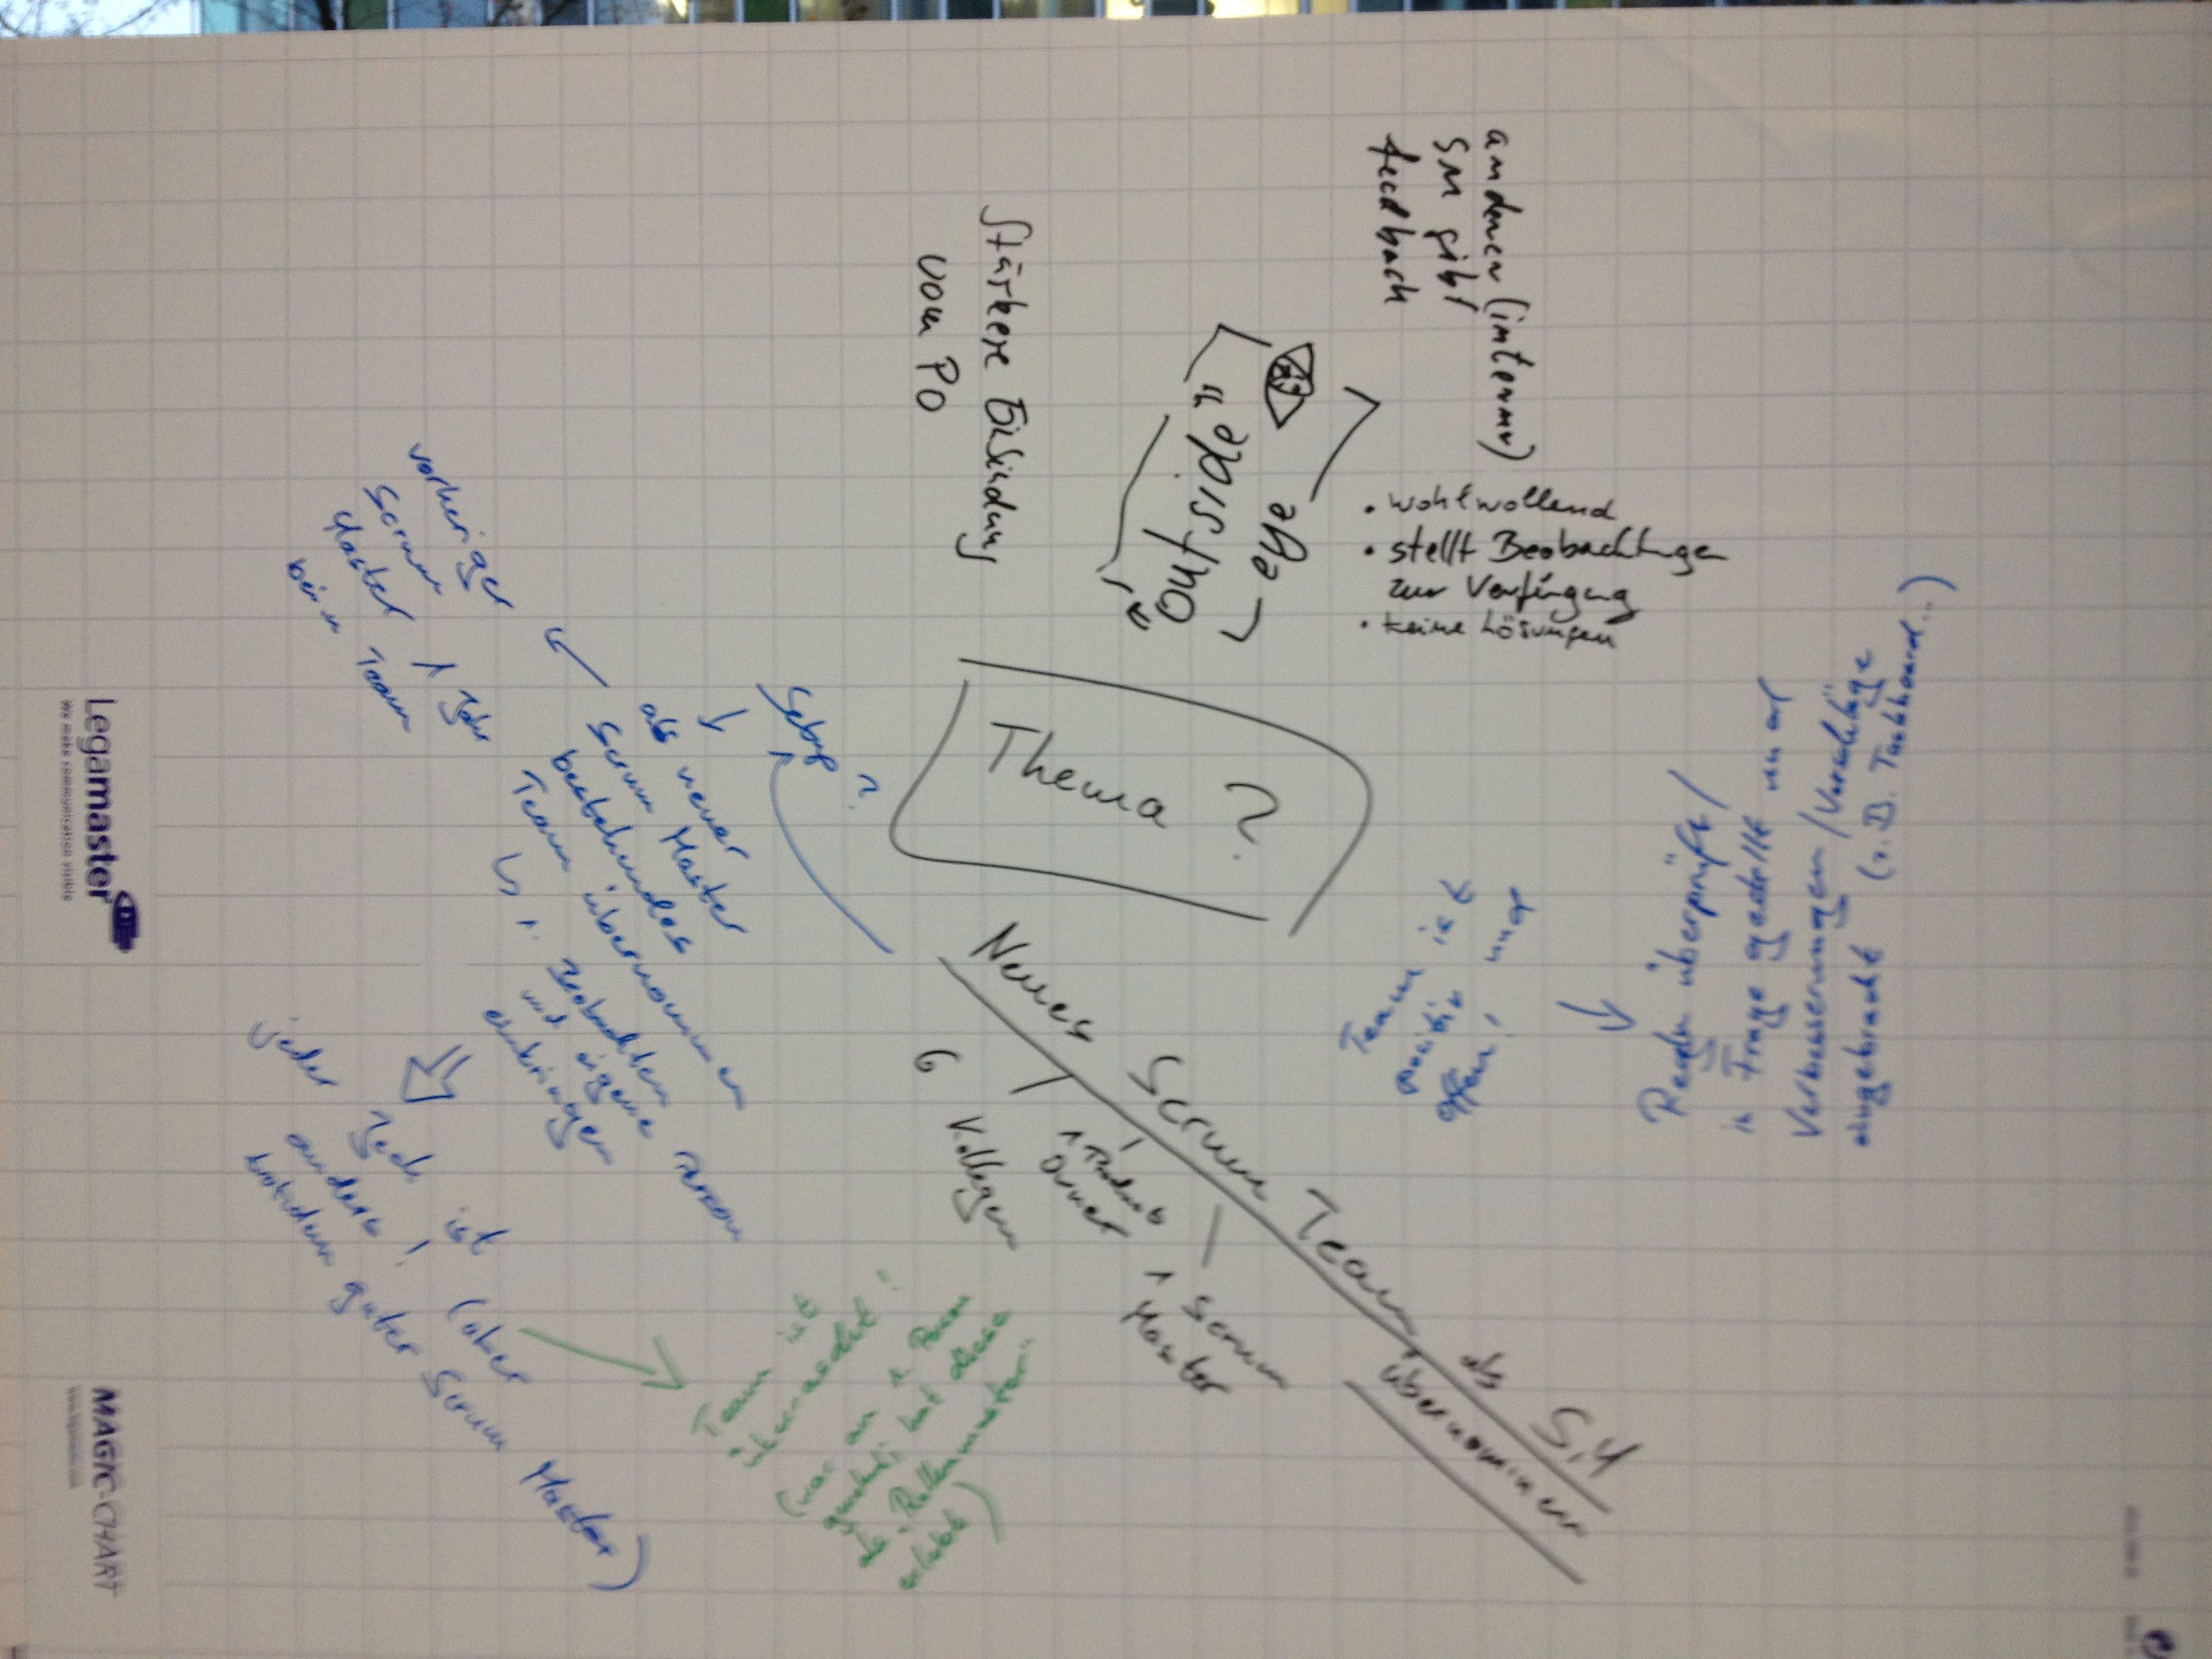 anderer (interner)
SM gibt
feedback
• wohlwollend
• stellt Beobachtungen
zur Verfügung
• keine Lösungen
Stärkere Einbindung
vom PO
Thema ?
Neues Scrum Team als SM
übernommen
6 Kollegen
1 Product
Owner
1 Scrum
Master
Setup ?
als neuer
Scrum Master
bestehendes
Team übernommen
↳ 1. Beobachten
und eigene Person
einbringen
vorheriger
Scrum
Master 1 Jahr
beim Team
jeder Tech ist
anders! (aber
trotzdem guter Scrum Master)
Team ist
überrascht!
(war an d. Person
gewöhnt, hat diese
als "Rollenmuster"
erlebt)
Team ist
positiv und
offen!
Regeln überprüft /
in Frage gestellt und
Verbesserungen / Vorschläge
eingebracht (z.B. Taskboard...)
Legamaster
We make communication visible
MAGIC-CHART